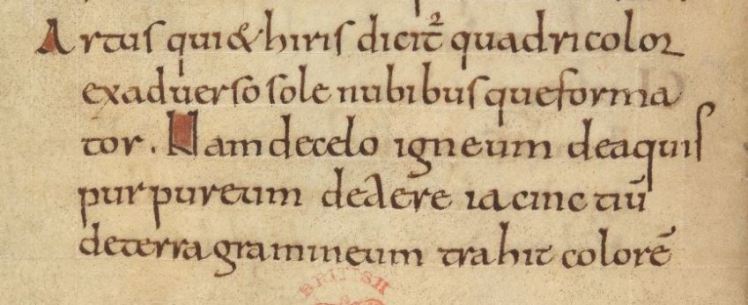 Artus qui & hiris dicit᷑ quadricolor
exaduerso sole nubibusque forma
tor. Nam decelo igneum deaquis
purpureum deaere iacinctiū
deterra gramineum trahit colorē
BRITISH